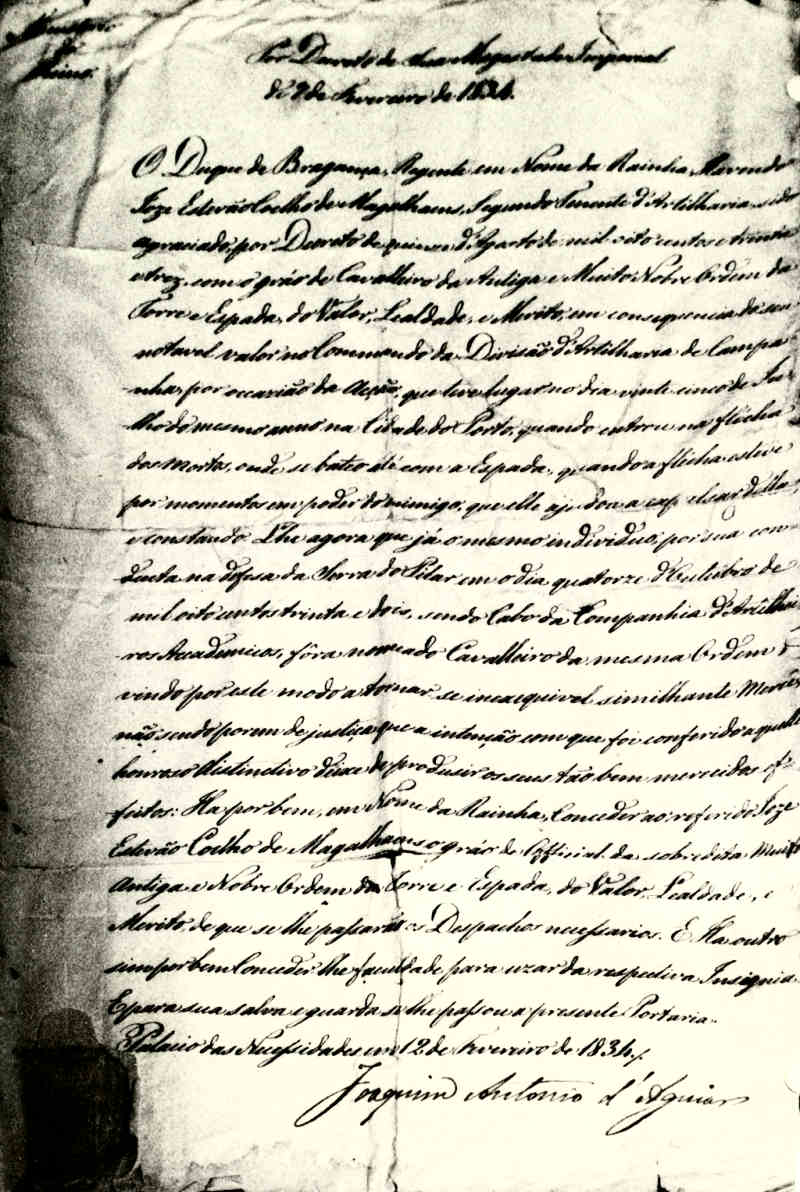 Reino.
Por Decreto de Sua Magestade Imperial
de 9 de Fevereiro de 1834.
O Duque de Bragança, Regente em Nome da Rainha, Havendo
Joze Estevão Coelho de Magalhaens, Segundo Tenente d'Artilharia sido
agraciado por Decreto de quinze d'Agosto de mil oito centos e trinta
e trez, com o gráo de Cavalleiro da Antiga e Muito Nobre Ordem da
Torre e Espada, do Valor, Lealdade, e Merito, em consequencia do seu
notavel valor no Commando da Divisão d'Artilharia de Campa
nha, por occazião da Acção, que teve lugar no dia vinte cinco de Ju
lho do mesmo anno na Cidade do Porto, quando entrou na flécha
dos Mortos, onde se bateo até com a Espada, quando a flécha esteve
por momentos em poder do inimigo, que elle ajudou a expelsar della,
e constando Lhe agora que já o mesmo individuo, por sua con
ducta na defesa da Serra do Pilar em o dia quatorze d'Outubro de
mil oito centos trinta e dois, sendo Cabo da Companhia d'Artilhei
ros Academicos, fôra nomeado Cavalleiro da mesma Ordem,
vindo por este modo a tornar se inexequivel similhante Mercê,
não sendo porem de justiça que a intenção com que foi conferido aquelle
honroso distinctivo deixe de produsir os seus tão bem merecidos ef
feitos: Ha por bem, em Nome da Rainha, Conceder ao referido Joze
Estevão Coelho de Magalhaens o gráo de Official da sobredita Muito
Antiga e Nobre Ordem da Torre e Espada, do Valor, Lealdade, e
Merito, de que se lhe passarão os Despachos necessarios. E Ha outro
sim por bem Conceder lhe faculdade para uzar da respectiva Insignia.
E para sua salva e guarda se lhe passou a presente Portaria.
Palacio das Necessidades em 12 de Fevereiro de 1834./
Joaquim Antonio d'Aguiar